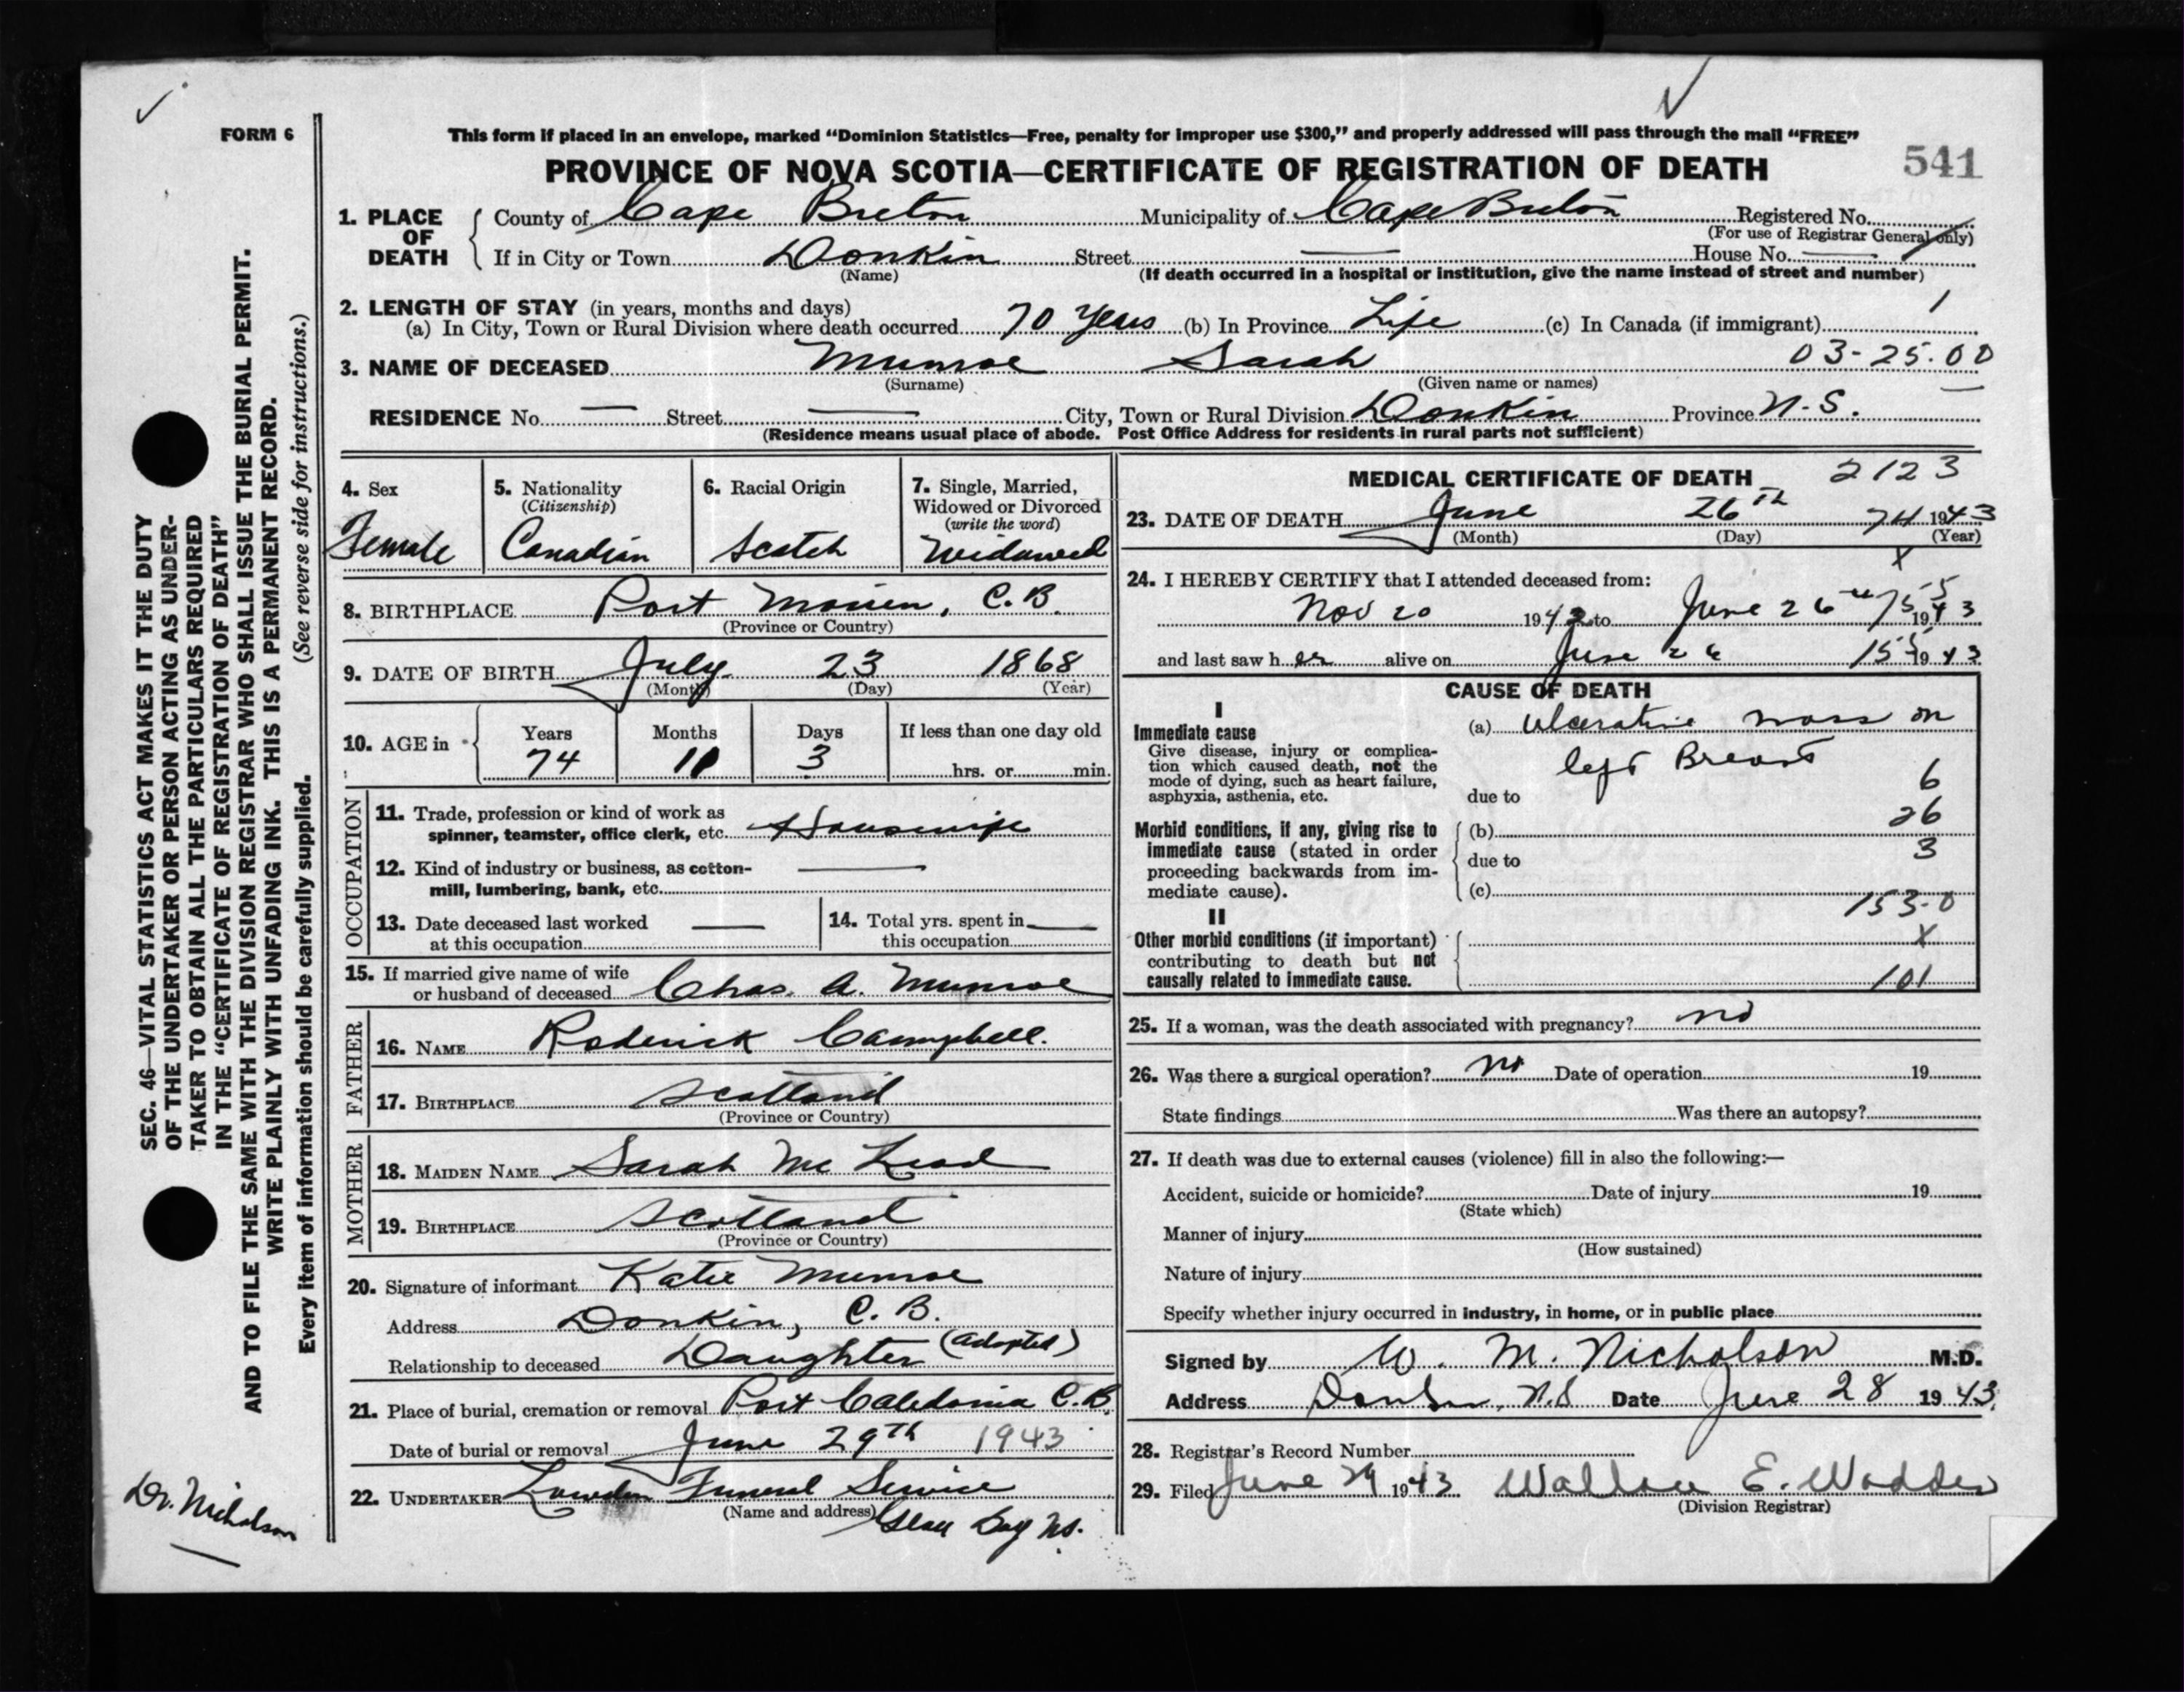 FORM 6
This form if placed in an envelope, marked "Dominion Statistics—Free, penalty for improper use $300," and properly addressed will pass through the mail "FREE"
PROVINCE OF NOVA SCOTIA—CERTIFICATE OF REGISTRATION OF DEATH
541
1. PLACE OF DEATH
County of Cape Breton Municipality of Cape Breton Registered No.
(For use of Registrar General only)
If in City or Town Donkin Street — House No. —
(Name) (If death occurred in a hospital or institution, give the name instead of street and number)
2. LENGTH OF STAY (in years, months and days) 1
(a) In City, Town or Rural Division where death occurred 70 Years (b) In Province Life (c) In Canada (if immigrant)
3. NAME OF DECEASED Munroe Sarah 03-25.00
(Surname) (Given name or names)
RESIDENCE No. — Street — City, Town or Rural Division Donkin Province N.S.
(Residence means usual place of abode. Post Office Address for residents in rural parts not sufficient)
4. Sex
Female
5. Nationality
(Citizenship)
Canadian
6. Racial Origin
Scotch
7. Single, Married, Widowed or Divorced
(write the word)
Widowed
8. BIRTHPLACE Port Morien, C.B.
(Province or Country)
9. DATE OF BIRTH July 23 1868
(Month) (Day) (Year)
10. AGE in
Years Months Days If less than one day old
74 11 3 hrs. or min.
OCCUPATION
11. Trade, profession or kind of work as
spinner, teamster, office clerk, etc. Housewife
12. Kind of industry or business, as cotton- —
mill, lumbering, bank, etc.
13. Date deceased last worked —
at this occupation
14. Total yrs. spent in —
this occupation
15. If married give name of wife
or husband of deceased Chas. A. Munroe
FATHER
16. NAME Roderick Campbell.
17. BIRTHPLACE Scotland
(Province or Country)
MOTHER
18. MAIDEN NAME Sarah Mc Leod
19. BIRTHPLACE Scotland
(Province or Country)
20. Signature of informant Katie Munroe
Address Donkin, C. B.
Relationship to deceased Daughter (adopted)
21. Place of burial, cremation or removal Port Caledonia C.B.
Date of burial or removal June 29th 1943
22. UNDERTAKER Funeral Service
(Name and address) Glace Bay NS.
MEDICAL CERTIFICATE OF DEATH 2123
23. DATE OF DEATH June 26TH 74 1943
(Month) (Day) (Year)
X
24. I HEREBY CERTIFY that I attended deceased from:
Nov 20 1942 to June 26th 1943
and last saw her alive on June 26 1943
CAUSE OF DEATH
I
Immediate cause
Give disease, injury or complication which caused death, not the
mode of dying, such as heart failure,
asphyxia, asthenia, etc.
(a) Ulcerative mass on
left Breast
6
due to
Morbid conditions, if any, giving rise to
immediate cause (stated in order
proceeding backwards from immediate cause).
26
(b)
due to
3
(c)
153-0
II
Other morbid conditions (if important)
contributing to death but not
causally related to immediate cause.
X
101
25. If a woman, was the death associated with pregnancy? no
26. Was there a surgical operation? no Date of operation 19
State findings Was there an autopsy?
27. If death was due to external causes (violence) fill in also the following:—
Accident, suicide or homicide? Date of injury 19
(State which)
Manner of injury
(How sustained)
Nature of injury
Specify whether injury occurred in industry, in home, or in public place
Signed by W. M. Nicholson M.D.
Address Donkin, N.S Date June 28 1943
28. Registrar's Record Number
29. Filed June 29 1943 Wallace E. Wadden
(Division Registrar)
SEC. 46—VITAL STATISTICS ACT MAKES IT THE DUTY
OF THE UNDERTAKER OR PERSON ACTING AS UNDER-
TAKER TO OBTAIN ALL THE PARTICULARS REQUIRED
IN THE "CERTIFICATE OF REGISTRATION OF DEATH"
AND TO FILE THE SAME WITH THE DIVISION REGISTRAR WHO SHALL ISSUE THE BURIAL PERMIT.
WRITE PLAINLY WITH UNFADING INK. THIS IS A PERMANENT RECORD.
Every item of information should be carefully supplied. (See reverse side for instructions.)
Dr. Nicholson